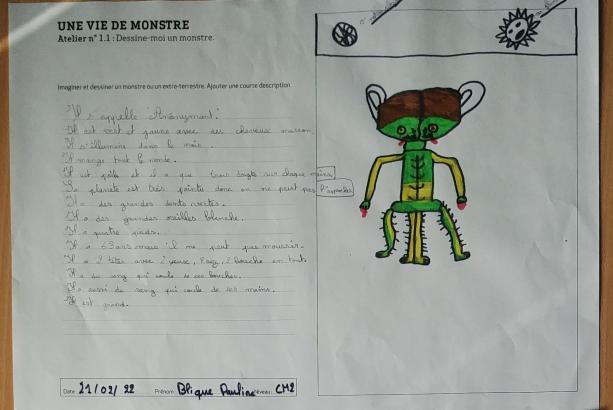 UNE VIE DE MONSTRE
Atelier n° 1.1 : Dessine-moi un monstre.
Imaginer et dessiner un monstre ou un extra-terrestre. Ajouter une courte description
Il s'appelle "Anonymant".
Il est vert et jaune avec des cheveux marron.
Il s'illumine dans le noir.
Il mange tout le monde.
Il est poilu et il a que trois doigts sur chaque mains
Sa planète est très pointu donc on ne peut pas l'approcher
Il a des grandes dents vertes.
Il a des grandes oreilles blanche.
Il a quatre pieds.
Il a 53ans mais il ne peut pas mourir.
Il a 2 têtes avec 2 yeux, 1 nez, 2 bouche en tout.
Il a du sang qui coule de ses bouches.
Il a aussi de sang qui coule de ses mains.
Il est grand.
Date 21/02/22 Prénom Blique Pauline Niveau CM2